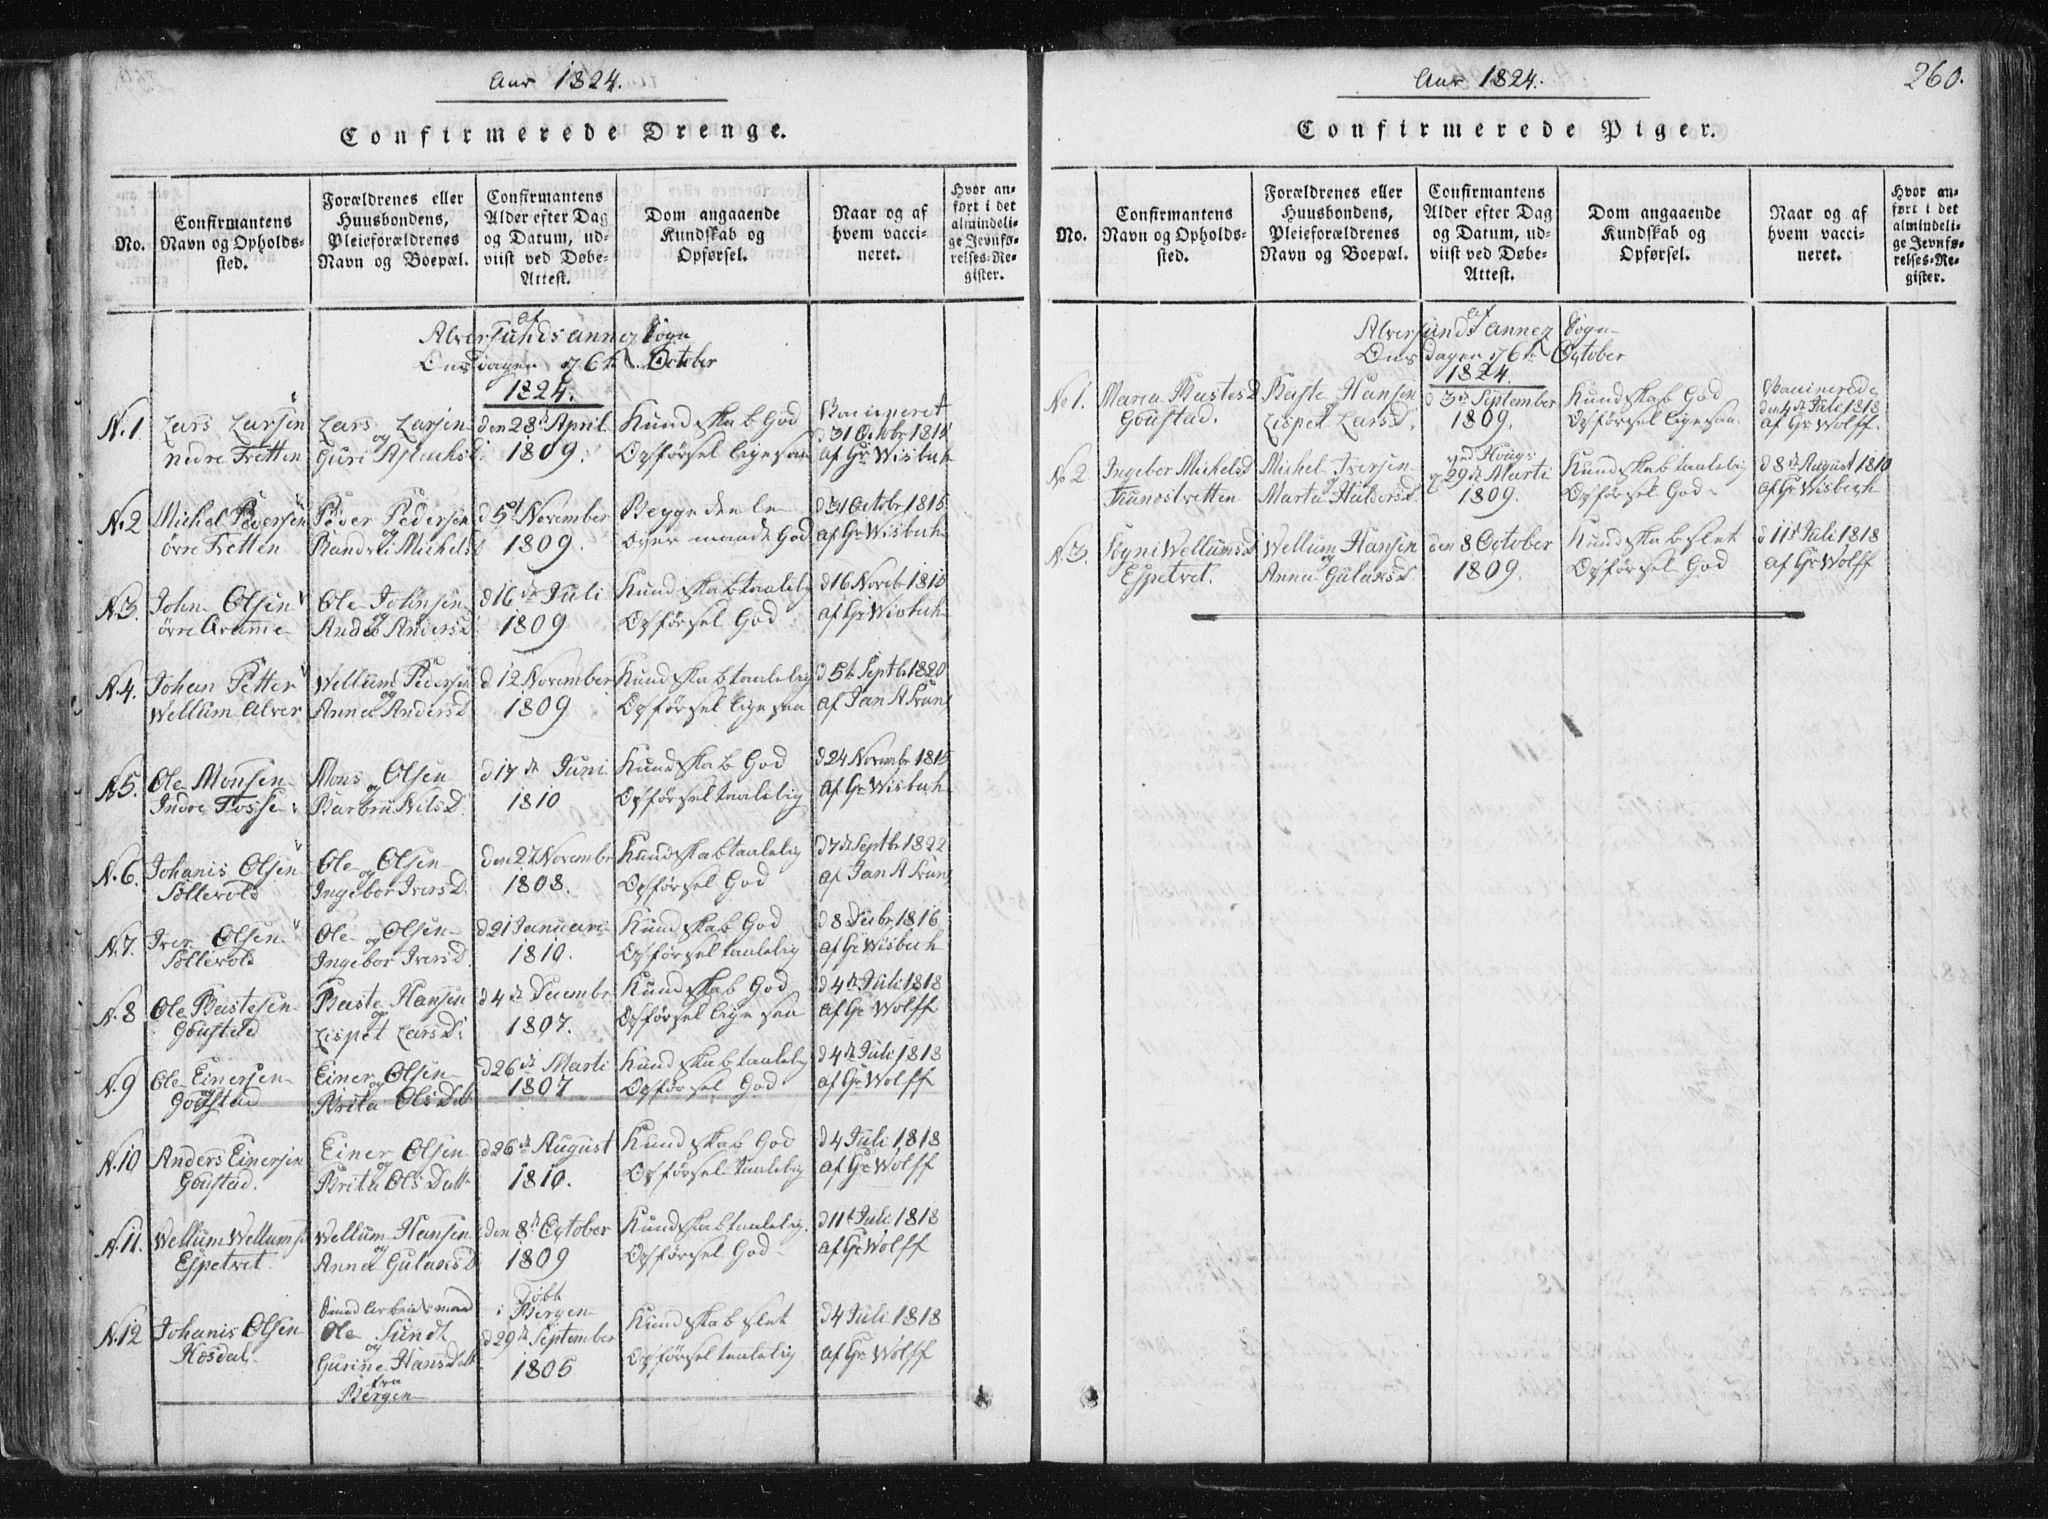 Aar 1824.
Confirmerede Drenge.
No.
Confirmantens
Navn og Opholds-
sted.
Forældrenes eller
Huusbondens,
Pleieforældrenes
Navn og Boepæl.
Confirmantens
Alder efter Dag
og Datum, ud-
viist ved Døbe-
Attest.
Dom angaaende
Kundskab og
Opførsel.
Naar og af
hvem vacci-
neret.
Hvor an-
ført i det
almindeli-
ge Jevnfø-
relses-Re-
gister.
af
Alversunds annex Sogn
Onsdagen d 6te October
1824.
N. 1
Lars Larsen
nedre Fretten
Lars Larsen
og
Guri Aslachsd.
den 28de April
1809.
Kundskab God
Opførsel ligesaa
Vaccineret
d 31 Octbr. 1815
af Hr Wisbech
N. 2
Michel Pedersen
övre Fretten
Peder Pedersen
og
Randvei Michelsd
d 5te November
1809.
Begge deele
over maade God
d 31 Octobr 1815
af Hr Wisbech
N. 3.
John Olsen
övre Qvamme
Ole Johnsen
og
Anders D.
d 16de Juli
1809
Kundskab taalelig
Opførsel God
d 16 Novbr 1810
af Hr Wisbech
N. 4.
Johan Petter
Wellum Alver
Wellum Pedersen
og
Anna Anders D.
d 12 November
1809
Kundskab taalelig
Opførsel ligesaa
d 5te Septbr 1820
af Jan A
N. 5.
Ole Monsen
Indre Fosse
Mons Olsen
og
Barbru Nils D.
d 17de Juni
1810
Kundskab God
Opførsel taalelig
d 24 Novembr 1815
af Hr Wisbech
N. 6.
Johanis Olsen
Töllevold
Ole Olsen
og
Ingebor Ivers D.
den 27 Novembr
1808.
Kundskab taalelig
Opførsel God
d 7de Septbr 1822
af Jan A
N. 7.
Iver Olsen
Töllevold
Ole Olsen
og
Ingebor Ivers D.
d 21 Januari
1810.
Kundskab God
Opførsel taalelig
d 8 Decbr. 1816
af Hr Wisbech
N. 8
Ole Bastesen
Goustad
Baste Hansen
og
Lispet Lars D.
d 4de Decembr
1807.
Kundskab God
Opførsel ligesaa
d 4de Juli 1818
af Hr Wolff
N. 9
Ole Einersen
Goustad
Einer Olsen
og
Brita Ols Datt
d 26de Marti
1807
Kundskab taalelig
Opførsel God
d 4de Juli 1818
af Hr Wolff
N. 10
Anders Einersen
Goustad.
Einer Olsen
og
Brita Ols Datt
d 26de August
1810.
Kundskab God
Opførsel taalelig
d 4 Juli 1818
af Hr Wolff
N. 11.
Wellum Wellums
Espetvet.
Wellum Hansen
og
Anna Gulacs D
den 8de October
1809
Kundskab taalelig.
Opførsel God
d 11te Juli 1818
af Hr Wolff
N. 12
Johanis Olsen
Rosdal
Arbeidsmand
Ole Sundt
og
Gurine Hans Datt
fra
Bergen
Döbt
i Bergen
d 29de September
1805
Kundskab slet
Opførsel taalelig
d 4 Juli 1818
af Hr Wolff
260.
Aar 1824.
Confirmerede Piger.
No.
Confirmantens
Navn og Opholds-
sted.
Forældrenes eller
Huusbondens,
Pleieforældrenes
Navn og Boepæl.
Confirmantens
Alder efter Dag
og Datum, ud-
viist ved Døbe-
Attest.
Dom angaaende
Kundskab og
Opførsel.
Naar og af
hvem vacci-
neret.
Hvor an-
ført i det
almindeli-
ge Jevnfø-
relses-Re-
gister.
af
Alversunds annex Sogn
Onsdagen d 6te October
1824.
No 1.
Maria Bastes D
Goustad.
Baste Hansen
og
Lispet Lars D.
d 3de September
1809.
Kundskab God
Opførsel ligesaa
Vaccinerede
den 4de Juli 1818
af Hr Wolff.
No 2
Ingebor Michelsd
Michel Iversen
og
Marta Halders D.
d 29de Marti
1809.
Kundskab taalelig
Opførsel God
d 8de August 1810
af Hr Wisbech
N. 3.
Sygni Wellums D
Espetvet.
Wellum Hansen
og
Anna Gulacs D.
den 8 October
1809.
Kundskab slet
Opførsel God
d 11te Juli 1818
af Hr Wolff